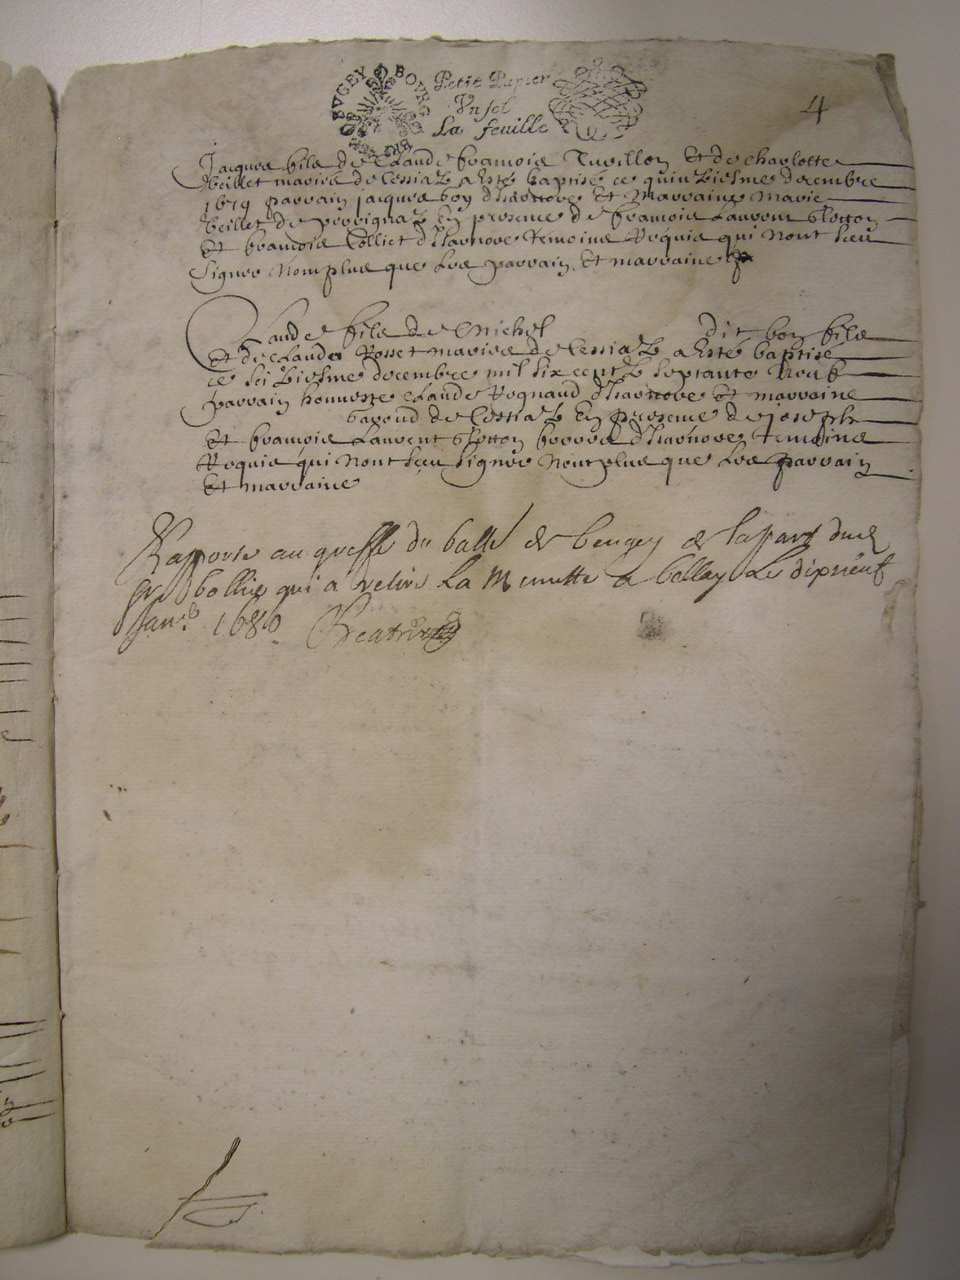 BVGEY BOVRG
Petit Papier
Vn sol
La feuille
4
Jacques fils de Claude francois Tuvillon Et de charlotte
beillet mariés de Cessiaz a Esté baptisé ce quinziesme decembre
1679 parrain jacques boy d'Isarnove Et Marraine Marie
beillet de en presence de francois Laurent
Et francois Colliet d'Isarnove temoins Requis qui Nont sceu
signer Nomplus que Les parrain Et marraine
Claude fils de Michel dit boy fils
Et de Claude Rosset mariés de Cessiaz a Esté baptise
ce seiziesme decembre mil six centz septante Neuf
parrain honneste Claude Reynaud d'Isarnove Et marraine
de Cessiaz En presence de joseph
Et francois Laurent freres d'Isarnove temoins
Requis qui Nont sceu signer Nonplus que Les parrain
Et marraine
Raporte au greffe du balle de beugey de la part dud
Sr bollie qui a retire La Minutte a belley Le dixneuf
Janer 1680